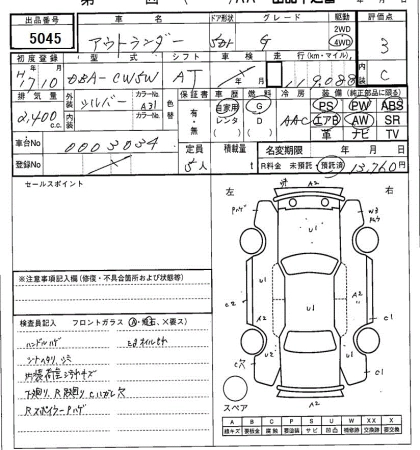 出品番号 車名 ドア形状 グレード 駆動 評価点
5045 アウトランダー 5D G 2WD 4WD 3
初度登録 型式 シフト 車検 走行(km・マイル) 内装
H17 10 DBA-CW5W AT 年 月 119,088 C
排気量 外装 カラーNo. 色替 保証書 車歴 燃料 冷房 装備(純正部品に限る)
2,400 c.c. シルバー A31 有・無 自家用 レンタ G D AAC PS PW ABS
内装 カラーNo. エアB AW SR
革 ナビ TV
車台No 0003034 定員 積載量 名変期限 年 月 日
登録No 5人 t R料金 未預託 預託済 13,760 円
セールスポイント
左 右
A2
Pハゲ W3
U1
U1 U1
A2
C2 C1
A2
U1
C穴 C1
A2
スペア
※注意事項記入欄(修復・不具合箇所および状態等)
検査員記入 フロントガラス (A・飛石、×要ス)
ハンドルハゲ
内張荷室シミキズ
下廻り、R足廻りCハガレ穴
RスポイラーPハゲ
A B C P S U W X XX
線キズ 要板金 腐蝕 要塗装 サビ 凹凸 補修跡 交換跡 要交換